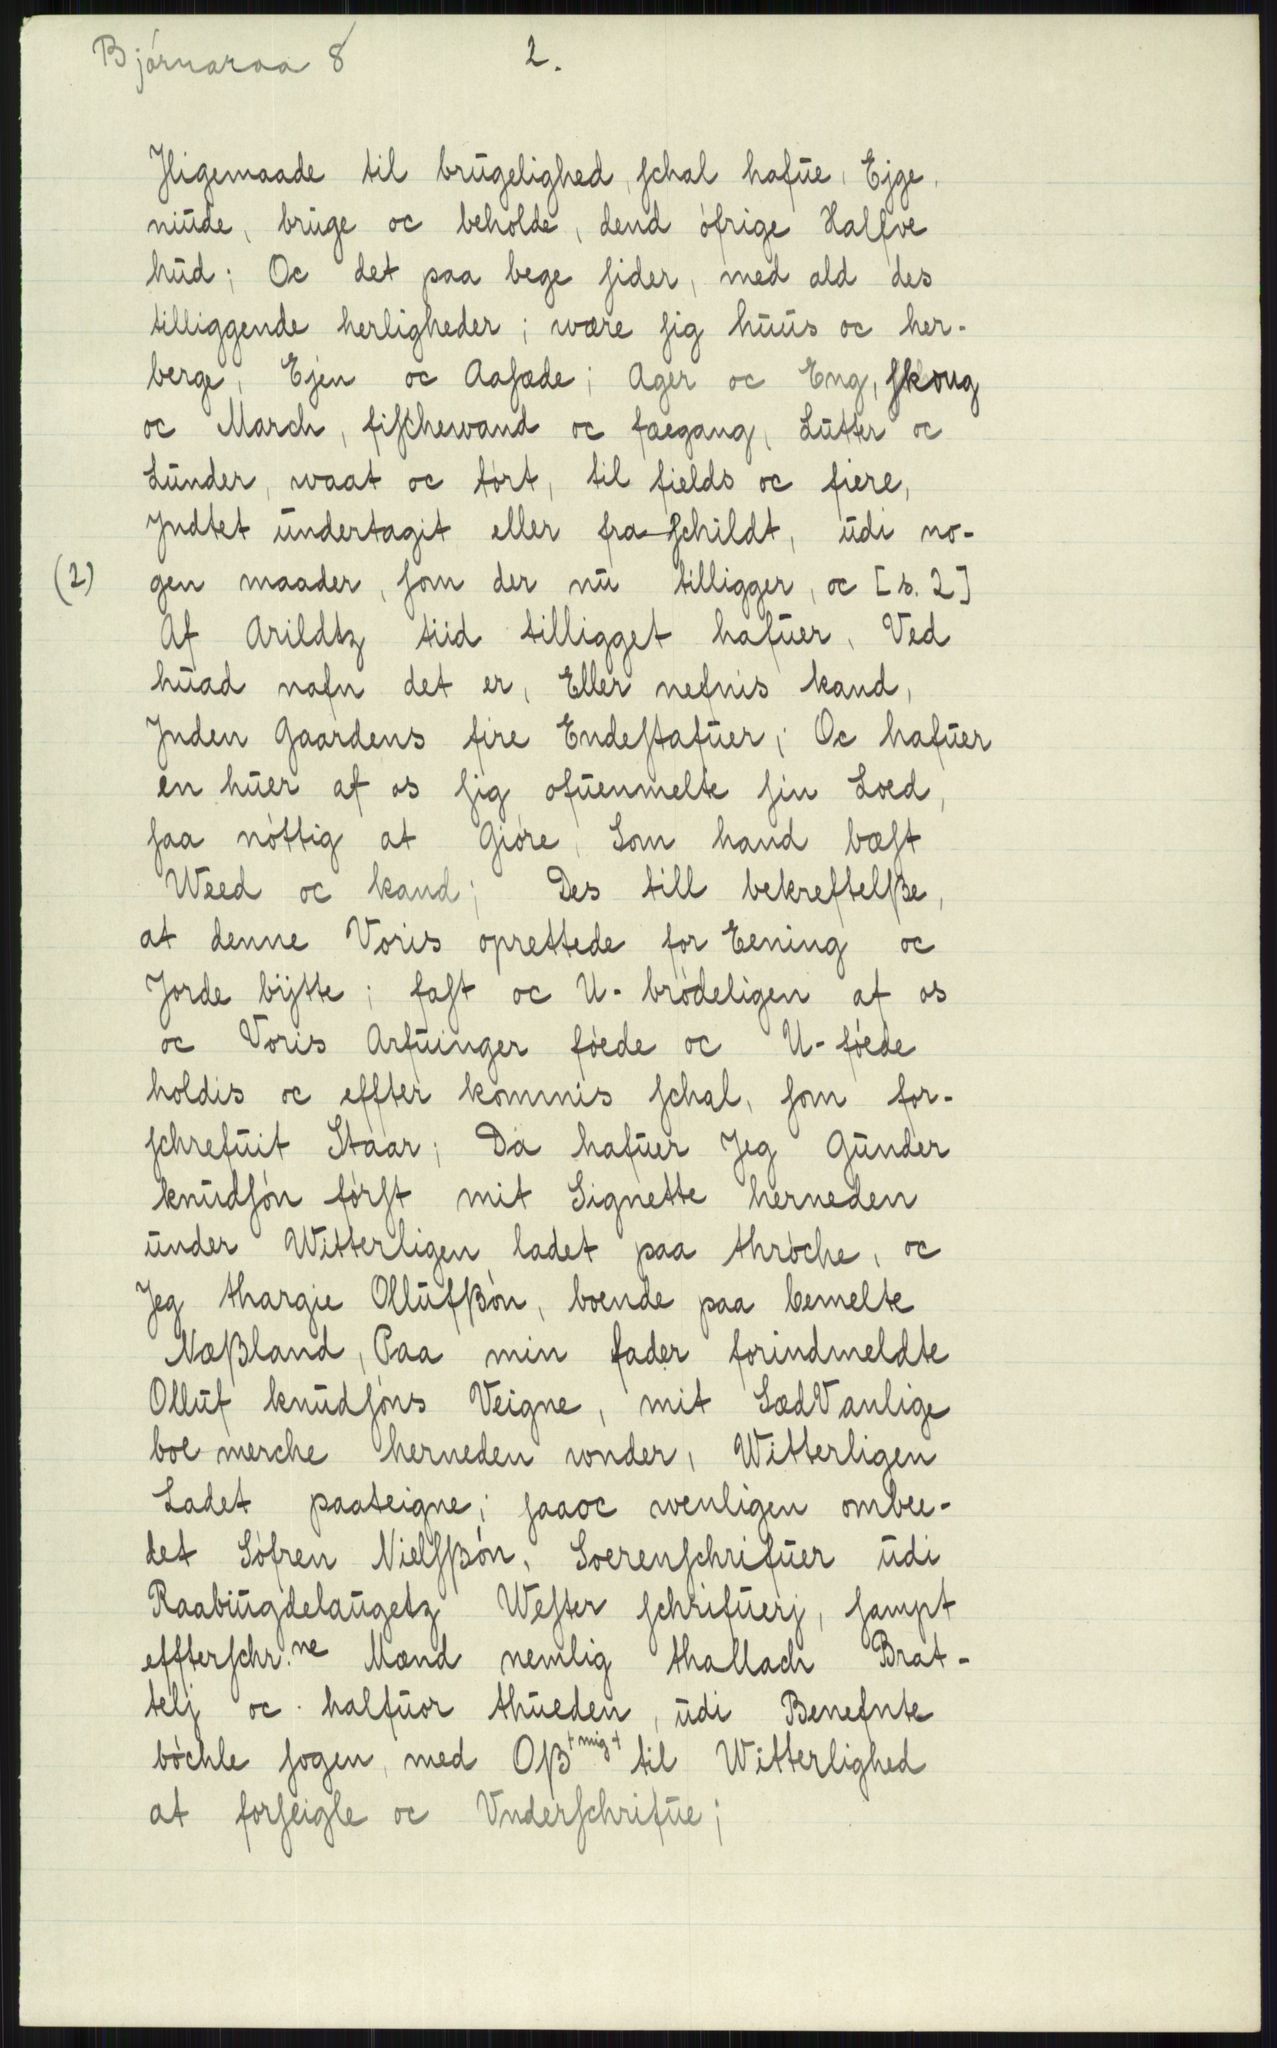 Bjórnaraa 8 2.
Jligemaade til brūgelighed, ſchal hafūe, Ejge,
niūde, brūge oc beholde, dend ófrige Halfve
hūd; Oc det paa bege ſider, med ald des
tilliggende herligheder; wære ſig hūūs oc her-
berge, Ejen oc Aaſæde; Ager oc Eng, ſkoug
oc March, fiſchewand oc fæegang, Lūtter oc
Lūnder, waat oc tórt, til fields oc fiere,
Jndtet ūndertagit eller fra ſchildt, ūdi no-
(2) gen maader, ſom der nū tilligger, oc [s. 2]
Af Arildtz tiid tilligget hafūer, Ved
hūad nafn det er, Eller nefnis kand,
Jnden Gaardens fire Endeſtafūer; Oc hafūer
en hūer af os ſig ofūenmelte ſin Loed,
ſaa nóttig at Gióre, Som hand bæſt
Weed oc kand; Des till bekreftelße,
at denne Voris oprettede for Eening oc
Jorde bijtte; faſt oc U-bródeligen af os
oc Voris Arfūinger fóede oc U-fóede
holdis oc effter kommis ſchal, ſom for-
ſchrefūit Staar; Da hafūer Jeg Gūnder
knūdſón fórſt mit Signette herneden
ūnder Witterligen ladet paa thróche, oc
Jeg thargie Ollūfßón, boende paa bemelte
Næßland, Paa min fader forindmeldte
Ollūf knūdſóns Veigne, mit SædVanlige
boe merche herneden wnder, Witterligen
Ladet paateigne; ſaaoc wenligen ombee-
det Sófren Nielſßón, Soerenſchrifūer ūdi
Raabiūgdelaūgetz Weſter ſchrifūerj, ſampt
effterſchr.ne Mænd nemlig thallach Brat-
telj oc halfūor thūeden, ūdi Benefnte
bóchle ſogen, med Oß +mig+ til Witterlighed
at forſeigle oc Vnderſchrifūe;